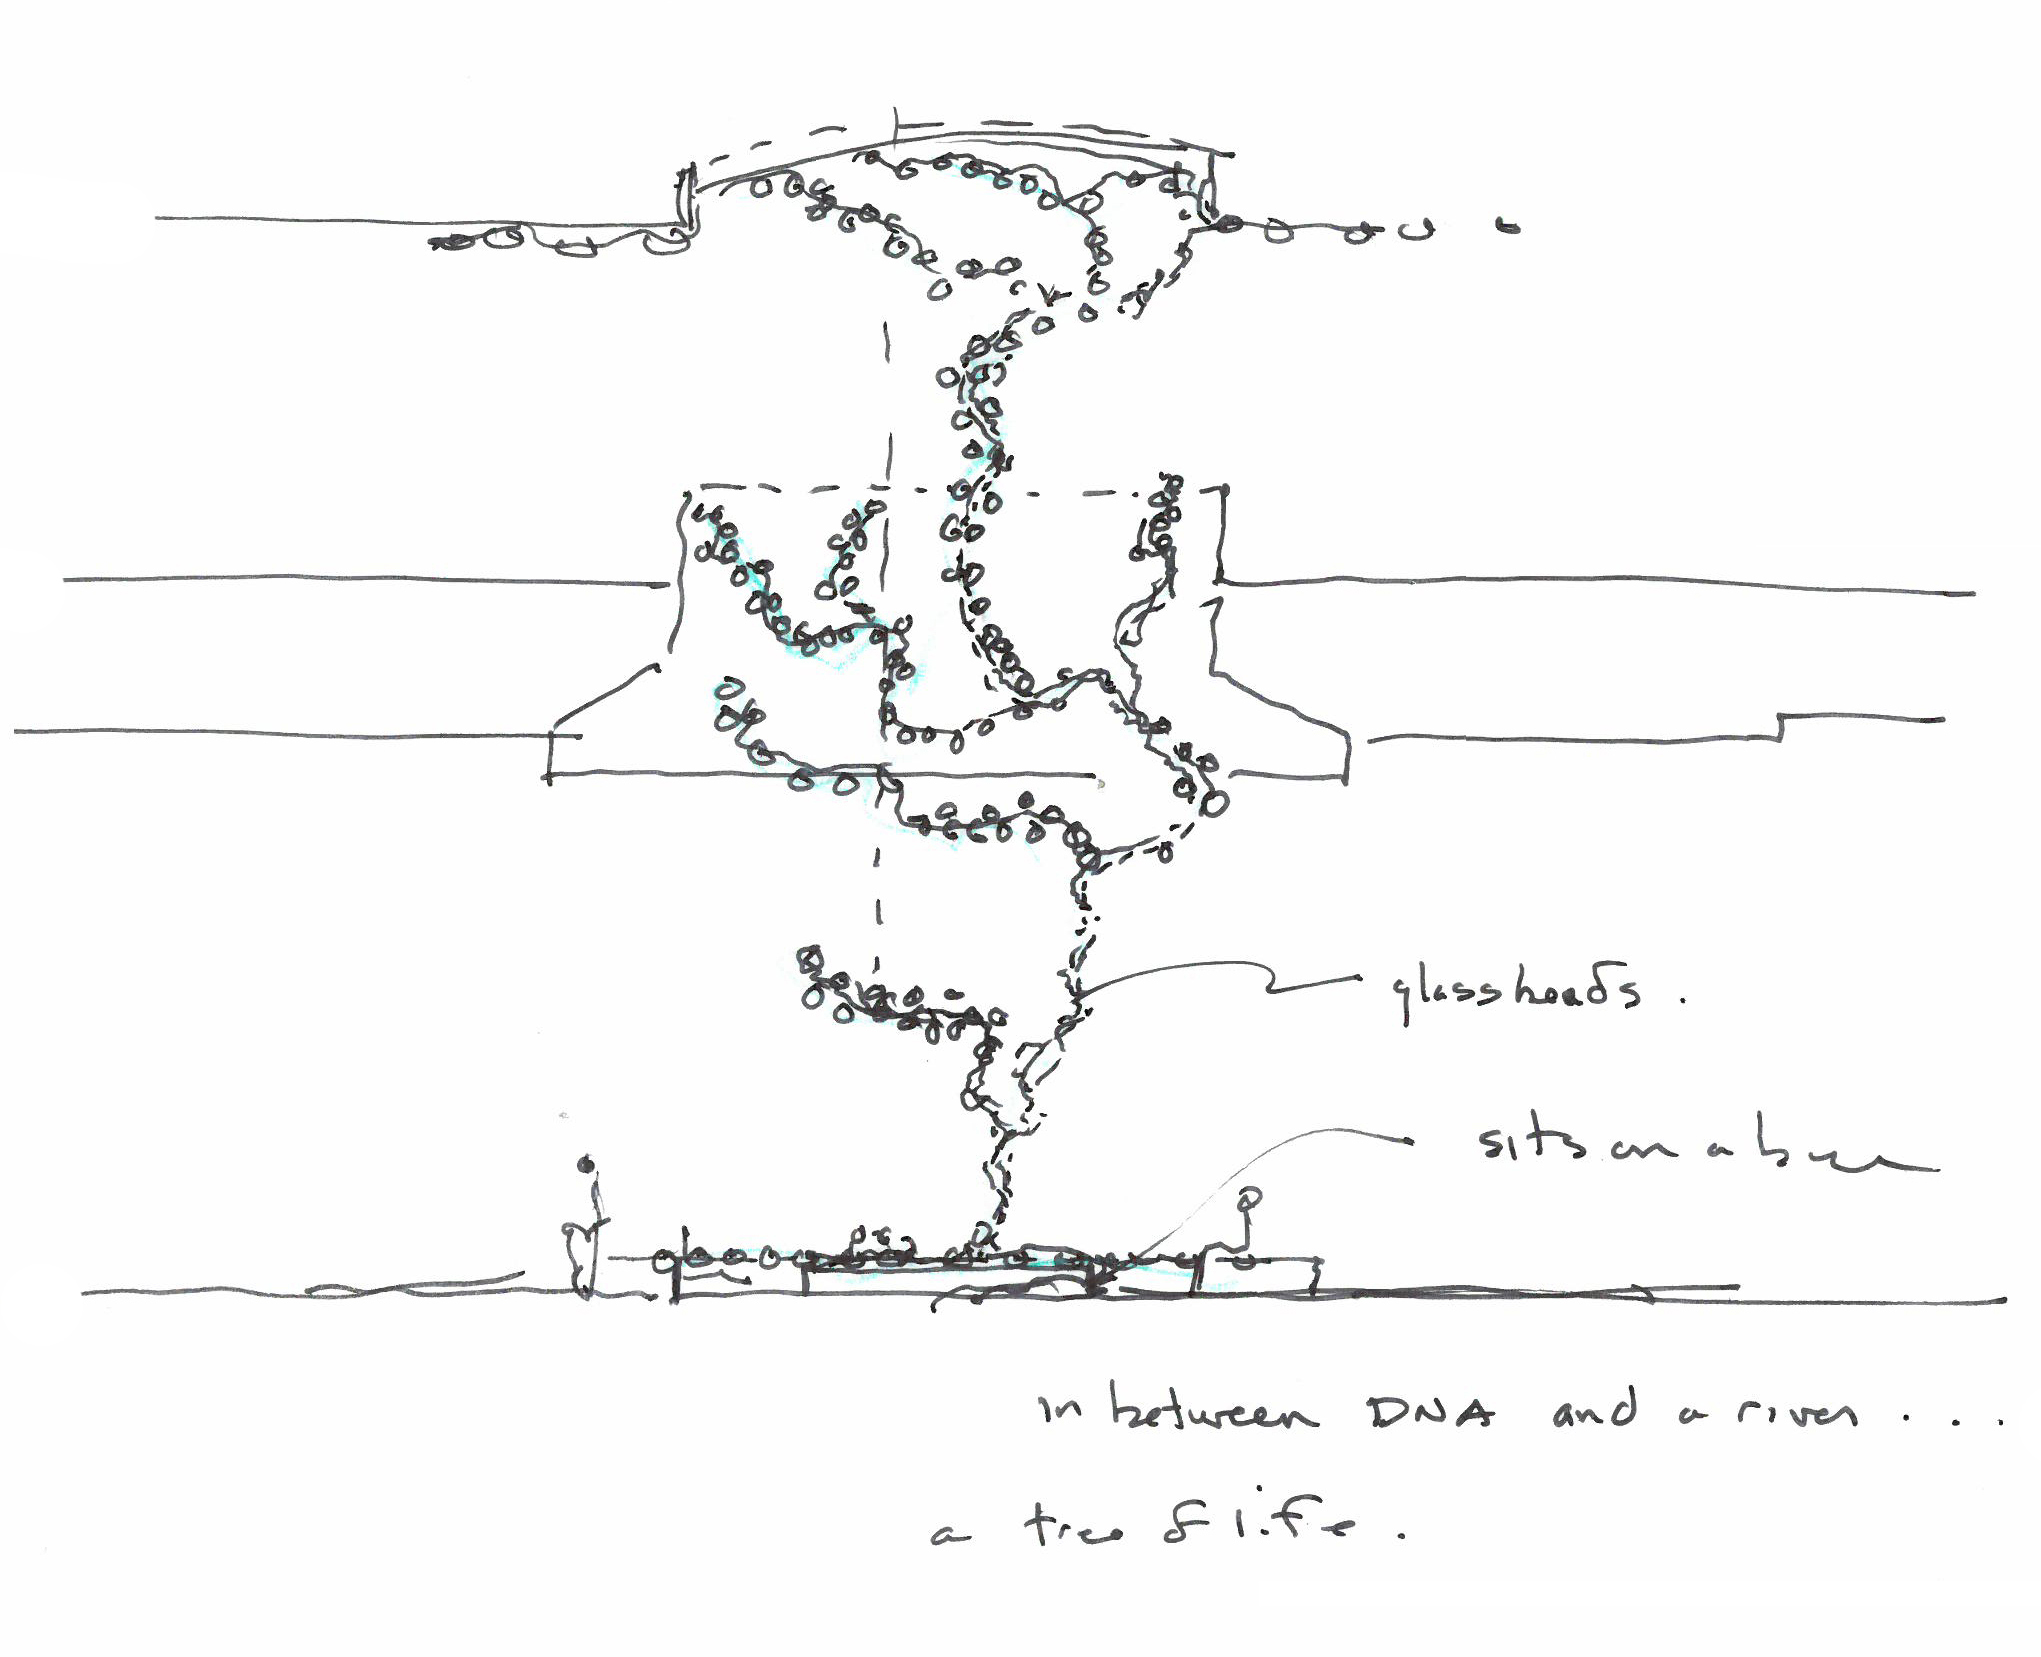 glassbeads.
sits on a
in between DNA and a river....
a tree of life.